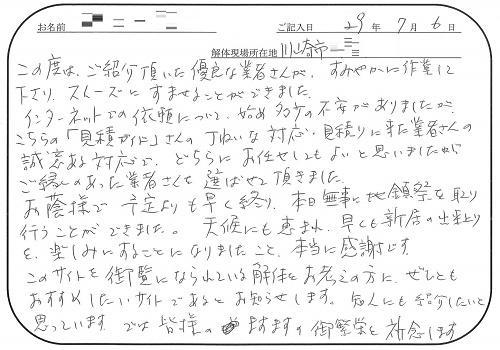 お名前 ご記入日 29年 7月 6日
解体現場所在地 川崎市
この度は、ご紹介頂いた優良な業者さんが、すみやかに作業して
下さり、スムーズにすませることができました。
インターネットでの依頼について、始め多少の不安がありましたが、
こちらの「見積ガイド」さんの丁ねいな対応、見積りに来た業者さんの
誠意ある対応で、どちらにお任せしてもよいと思いましたが
ご縁のあった業者さんを選ばせて頂きました。
お蔭様で予定よりも早く終り、本日無事に地鎮祭を取り
行うことができました。天候にも恵まれ、早くも新居の出来上り
を、楽しみにすることになりましたこと、本当に感謝です。
このサイトを御覧になられている解体をお考えの方に、ぜひとも
おすすめしたいサイトであるとお知らせします。知人にも紹介したいと
思っています。では皆様のますますの御繁栄を祈念します